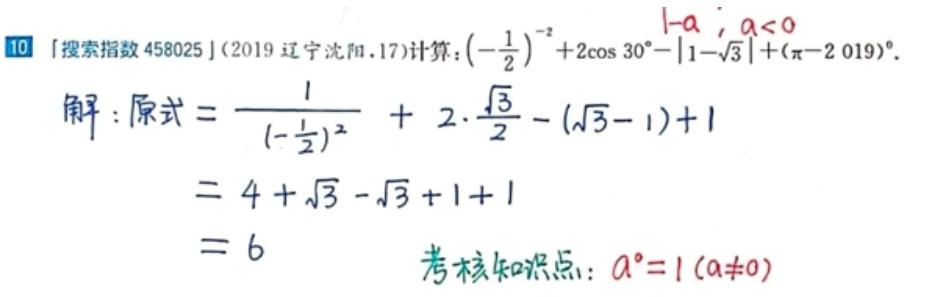 |-a , a<0
10 「搜索指数 458025」(2019 辽宁沈阳,17)计算:(-1/2)^{-2}+2cos 30°-|1-√3|+(π-2 019)^0.
解:原式 = 1/(-1/2)^2 + 2·√3/2 - (√3-1)+1
= 4+√3-√3+1+1
= 6
考核知识点: a^0=1 (a≠0)